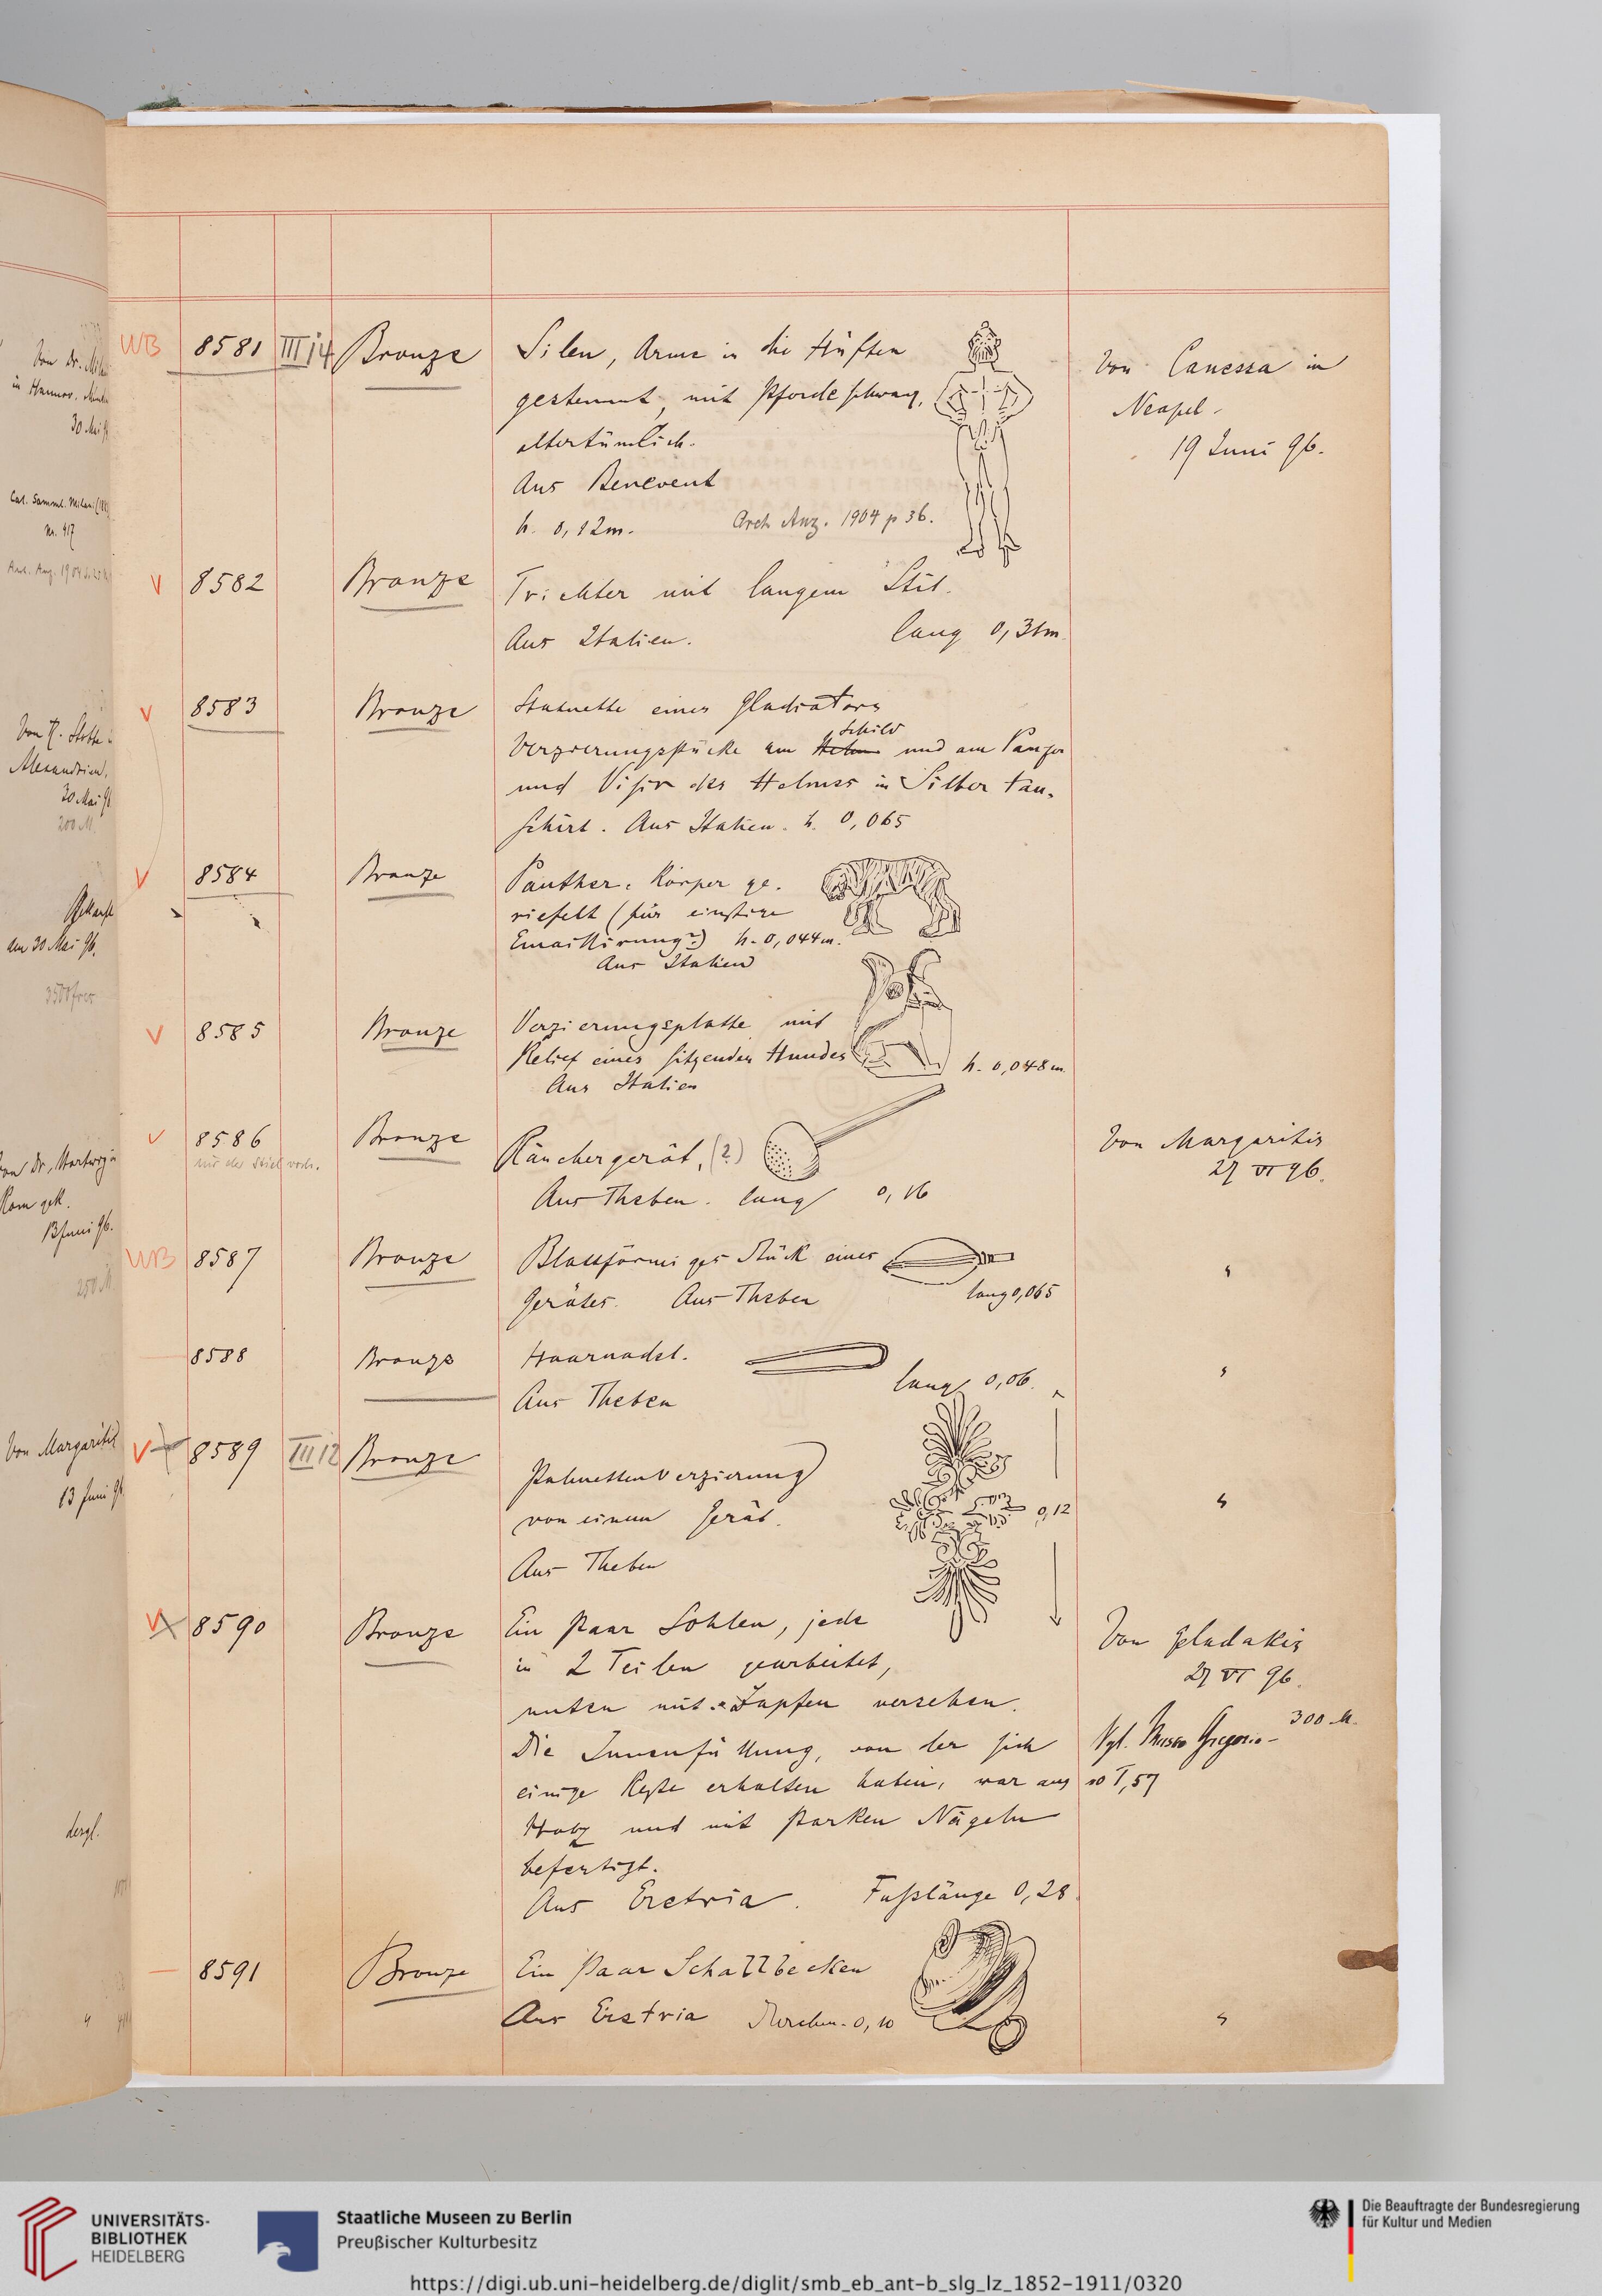 WB 8581 III i4 Bronze Silen, Arme in die Hüften
gestemmt, mit Pferdeschwanz,
altertümlich.
Aus Benevent
h. 0,12m. Arch. Anz. 1904 p 36.
Von Canessa in
Neapel.
19 Juni 96.
V 8582 Bronze Trichter mit langem Stil.
Aus Italien. lang 0,31m.
V 8583 Bronze Statuette eines Gladiators
Schild
Verzierungsstücke am Helm und am Panzer
und Visir des Helmes in Silber tau-
schirt. Aus Italien. h. 0,065
V 8584 Bronze Panther. Körper ge-
riefelt (für einstige
Emaillirung?) h. 0,044m.
Aus Italien
V 8585 Bronze Verzierungsplatte mit
Relief eines sitzenden Hundes h. 0,048m
Aus Italien
V 8586 Bronze Räuchergerät, (?)
nur der Stiel vorh.
Aus Theben. lang 0,16
Von Margaritis
27 VI 96.
WB 8587 Bronze Blattförmiges Stück eines
Gerätes. Aus Theben lang 0,065
"
8588 Bronze Haarnadel.
Aus Theben lang 0,06.
"
V 8589 III 12 Bronze Palmettenverzierung
von einem Gerät. 0,12
Aus Theben
"
V 8590 Bronze Ein Paar Sohlen, jede
in 2 Teilen gearbeitet,
unten mit Zapfen versehen.
Die Innenfüllung, von der sich
einige Reste erhalten haben, war aus
Holz und mit starken Nägeln
befestigt.
Aus Eretria. Fußlänge 0,28
Von Geladakis
27 VI 96.
300 M.
Vgl. Museo Gregoria-
no I, 57
8591 Bronze Ein Paar Schallbecken
Aus Eretria Durchm. 0,10
"
Von Dr.
30 Mai
Cat. Samml. Milani
Nr. 417
Alexandrien.
30 Mai 96
200 M.
Gekauft
am 30 Mai 96.
3500 frcs
Von Dr. Hartwig in
Rom gek.
13 Juni 96.
250 M.
Von Margaritis
13 Juni 96
dergl.
UNIVERSITÄTS-
BIBLIOTHEK
HEIDELBERG
Staatliche Museen zu Berlin
Preußischer Kulturbesitz
Die Beauftragte der Bundesregierung
für Kultur und Medien
https://digi.ub.uni-heidelberg.de/diglit/smb_eb_ant-b_slg_lz_1852-1911/0320